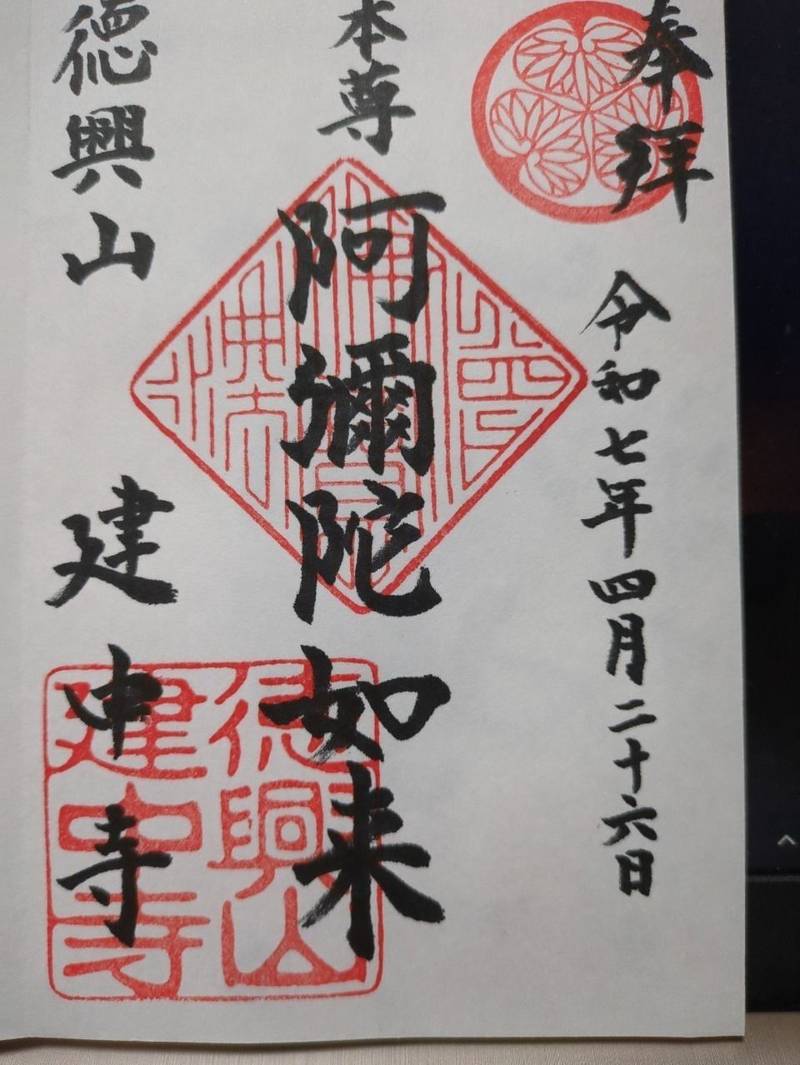 奉拜
令和七年四月二十六日
本尊
阿彌陀如来
徳興山
建中寺
徳興山
建中寺